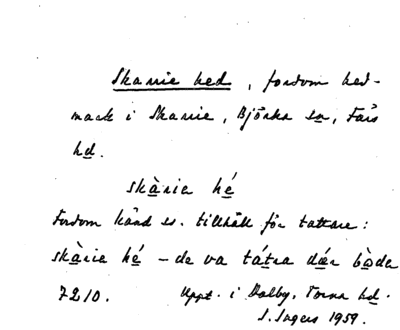 Skarrie hed, fordom hed-
mark i Skarrie, Björka sn, Färs
hd.
skària hé
Fordom känd ss. tillhåll för tattare:
skària hé – de va tátra dǽr bòde
7210. Uppt. i Dalby, Torna hd.
I. Ingers 1959.